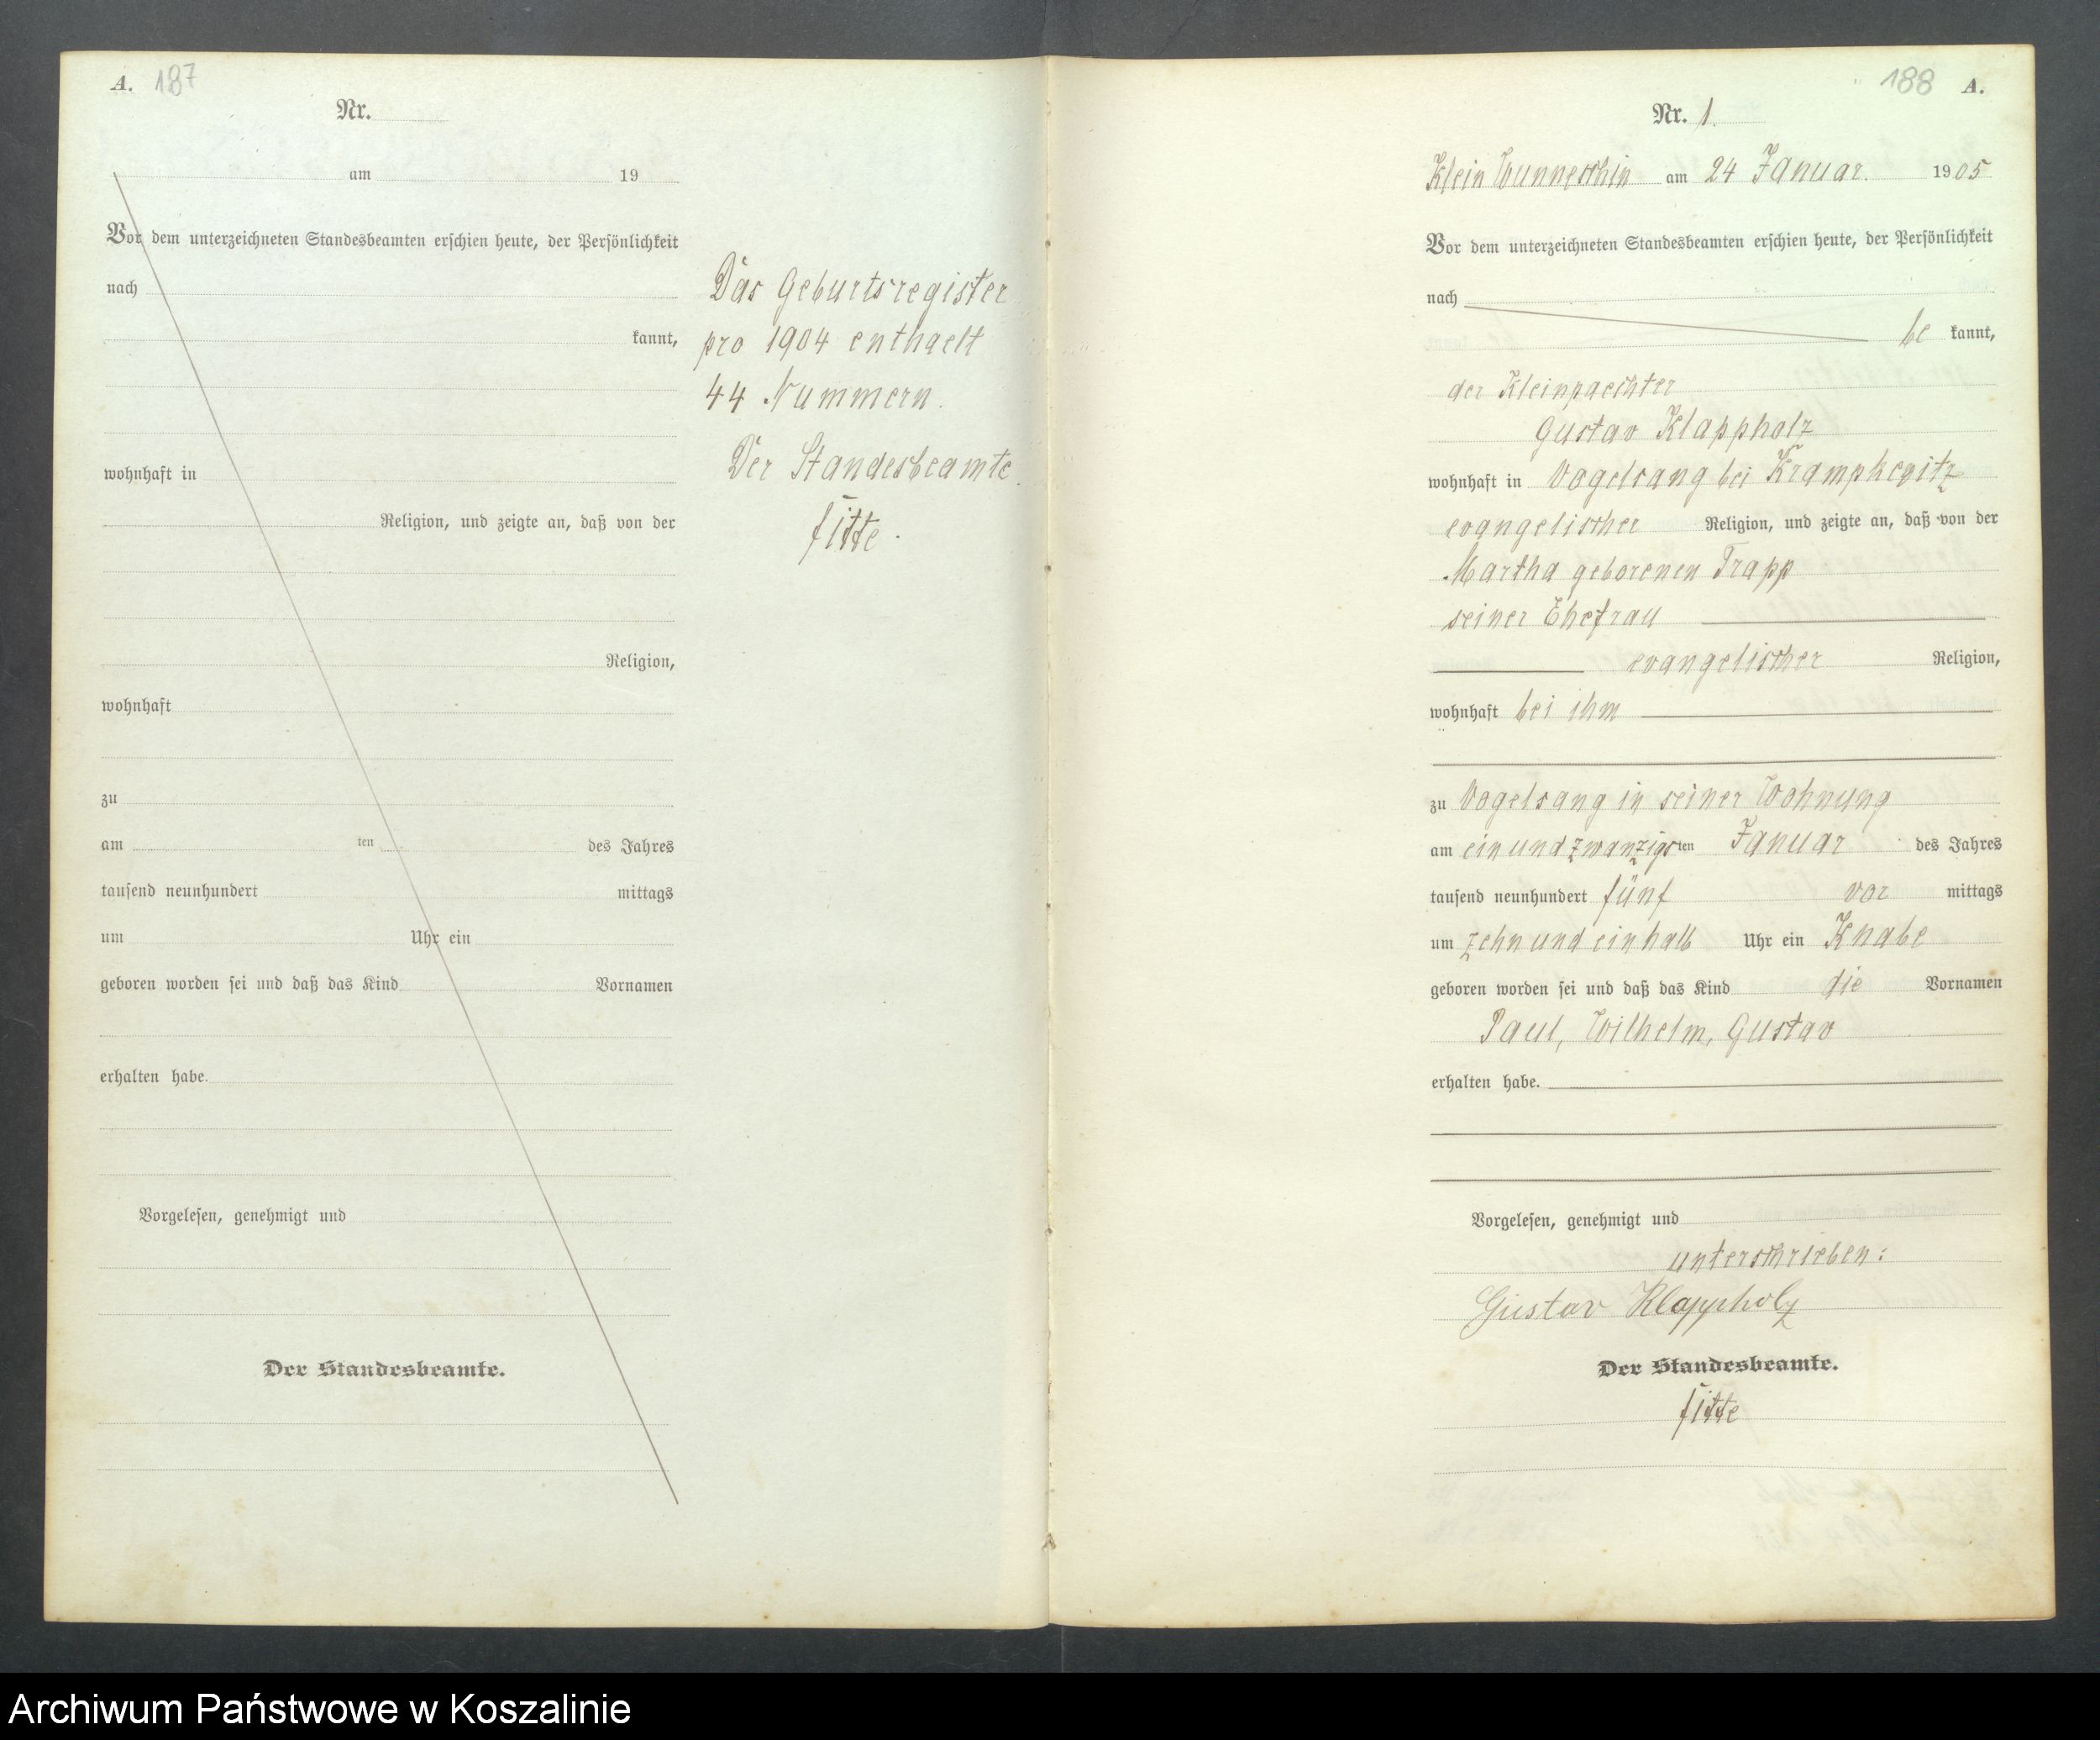 A. 187
Nr.
am 19
Vor dem unterzeichneten Standesbeamten erschien heute, der Persönlichkeit
nach
kannt,
wohnhaft in
Religion, und zeigte an, daß von der
Religion,
wohnhaft
zu
am ten des Jahres
tausend neunhundert mittags
um Uhr ein
geboren worden sei und daß das Kind Vornamen
erhalten habe.
Vorgelesen, genehmigt und
Der Standesbeamte.
Das Geburtsregister
pro 1904 enthaelt
44 Nummern.
Der Standesbeamte
fitte.
188 A.
Nr. 1.
Klein Wunneschin am 24 Januar. 1905
Vor dem unterzeichneten Standesbeamten erschien heute, der Persönlichkeit
nach
be kannt,
der Kleinpaechter
Gustav Klappholz
wohnhaft in Vogelsang bei Krampkewitz
evangelischer Religion, und zeigte an, daß von der
Martha geborenen Trapp
seiner Ehefrau
evangelischer Religion,
wohnhaft bei ihm
zu Vogelsang in seiner Wohnung
am ein und zwanzigsten Januar des Jahres
tausend neunhundert fünf vor mittags
um zehn und ein halb Uhr ein Knabe
geboren worden sei und daß das Kind die Vornamen
Paul, Wilhelm, Gustav
erhalten habe.
Vorgelesen, genehmigt und
unterschrieben:
Gustav Klappholz
Der Standesbeamte.
fitte
Archiwum Państwowe w Koszalinie